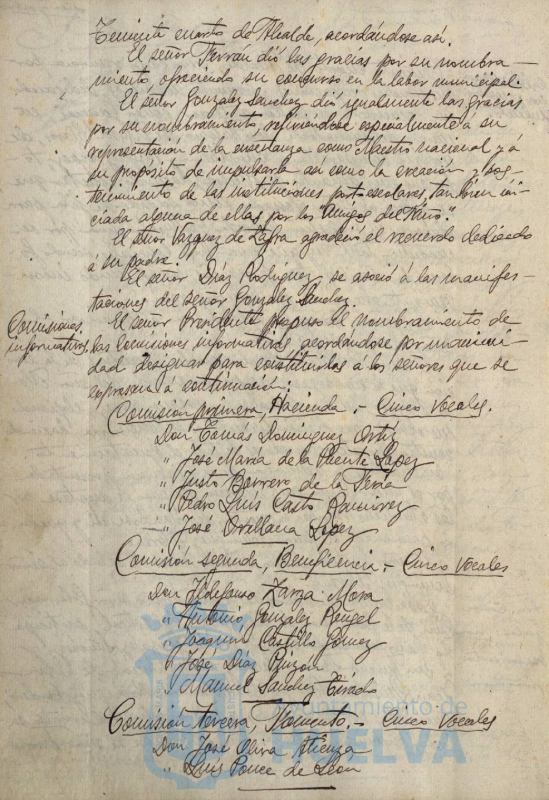 Teniente cuarto de Alcalde, acordándose así.
El señor Terrán dió las gracias por su nombra-
miento, ofreciendo su concurso en la labor municipal.
El señor Gonzalez Sanchez dió igualmente las gracias
por su nombramiento, refiriéndose especialmente á su
representación de la enseñanza como Maestro nacional y á
su propósito de impulsarla así como la creación y sos-
tenimiento de las instituciones post-escolares, tan bien ini-
ciada alguna de ellas por los "Amigos del Niño".
El señor Vazquez de Zafra agradeció el recuerdo dedicado
á su padre.
El señor Díaz Rodriguez se asoció á las manifes-
taciones del señor Gonzalez Sanchez.
Comisiones
informativas.
El señor Presidente propuso el nombramiento de
las Comisiones informativas, acordándose por unanimi-
dad designar para constituirlas á los señores que se
expresan á continuación:
Comisión primera, Hacienda.- Cinco Vocales.
Don Tomás Dominguez Ortiz
" José María de la Puente Lopez
" Justo Borrero de la Feria
" Pedro Luis Casto Ramirez
" José Orellana Lopez
Comisión segunda, Beneficencia.- Cinco Vocales
Don Ildefonso Zarza Mora
" Antonio Gonzalez Rengel
" Joaquin Castillo Gómez
" José Díaz Pinzon
" Manuel Sanchez Tirado
Comisión tercera, Fomento.- Cinco Vocales
Don José Oliva Atienza
" Luis Ponce de León
Ayuntamiento de
HUELVA